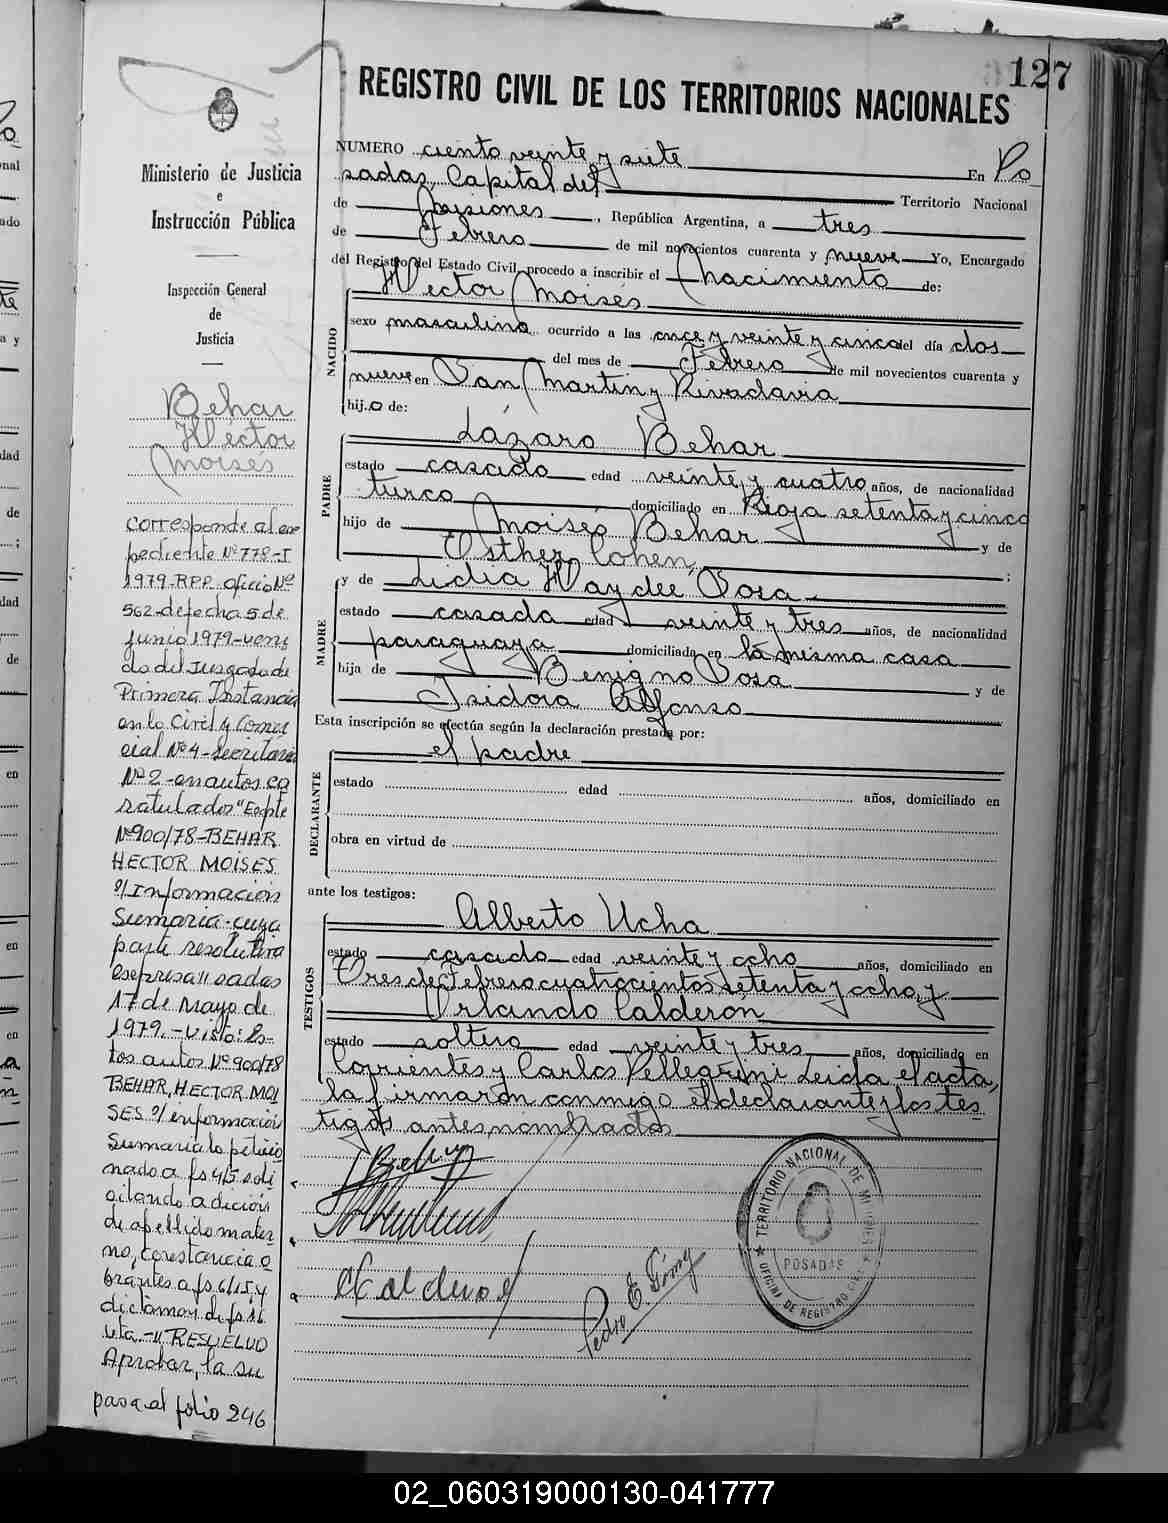 127
REGISTRO CIVIL DE LOS TERRITORIOS NACIONALES
Ministerio de Justicia
e
Instrucción Pública
Inspección General
de
Justicia
Behar
Héctor
Moisés
NUMERO ciento veinte y siete En Po
sadas, Capital del Territorio Nacional
de Misiones, República Argentina, a tres
de Febrero de mil novecientos cuarenta y nueve Yo, Encargado
del Registro del Estado Civil, procedo a inscribir el nacimiento de:
NACIDO
Héctor Moisés
sexo masculino ocurrido a las once y veinte y cinco del día dos
del mes de Febrero de mil novecientos cuarenta y
nueve en San Martin y Rivadavia
hijo de:
PADRE
Lázaro Behar
estado casado edad veinte y cuatro años, de nacionalidad
turco domiciliado en Rioja setenta y cinco
hijo de Moisés Behar y de
Esther Cohen ;
MADRE
y de Lidia Haydée Sosa
estado casada edad veinte y tres años, de nacionalidad
paraguaya domiciliada en la misma casa
hija de Benigno Sosa y de
Isidora Alfonso
Esta inscripción se efectúa según la declaración prestada por:
el padre
DECLARANTE
estado edad años, domiciliado en
obra en virtud de
ante los testigos:
TESTIGOS
Alberto Ucha
estado casado edad veinte y ocho años, domiciliado en
Tres de Febrero cuatrocientos setenta y ocho, y
Orlando Calderón
estado soltero edad veinte y tres años, domiciliado en
Corrientes y Carlos Pellegrini Leida el acta,
la firmarón conmigo el declarante y los tes
tigos antes nombrados
Pedro E. Gómez
TERRITORIO NACIONAL DE MISIONES
POSADAS
OFICINA DE REGISTRO CIVIL
corresponde al ex
pediente Nº 778-I
1979-RPP. oficio Nº
562-de fecha 5 de
Junio 1979-veni
do del Juzgado de
Primera Instancia
en lo Civil y Comer
cial Nº 4-Secretaria
Nº 2-en autos ca
ratulados "Expte
Nº 900/78-BEHAR
HECTOR MOISES
s/Información
Sumaria-cuya
parte resolutiva
expresa: Posadas
17 de Mayo de
1979.-Visto: Es-
tos autos Nº 900/78
BEHAR, HECTOR MOI
SES s/información
Sumaria lo peticio
nado a fs 4/5 soli
citando adición
de apellido mater
no, constancia o
brantes a fs 6/15, y
dictamen de fs 16
vta.-" RESUELVO
Aprobar, la su
pasa al folio 246
02_060319000130-041777